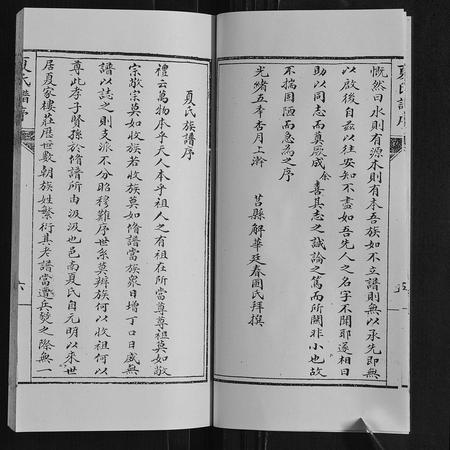 夏氏譜序
慨然曰水則有源木則有本吾族如不立譜則無以承先即無
以啟後自茲以往安知不盡如吾先人之名字不聞耶遂相日
助以同志而奠厥成余喜其志之誠論之篤而所關非小也故
不揣固陋而急為之序
光緒五年杏月上澣　莒縣解華廷春圃氏拜撰
五
夏氏族譜序
禮云萬物本乎天人本乎祖人之有祖在所當尊尊祖莫如敬
宗敬宗莫如收族若收族莫如脩譜當族衆日增丁口日盛無
譜以誌之則支派不分昭穆難序世系莫辨族何以收祖何以
尊此孝子賢孫於脩譜所由汲汲也邑南夏氏自元明以來世
居夏家樓莊歷世數朝族姓繁衍其老譜當遭兵燹之際無一
夏氏譜序
六